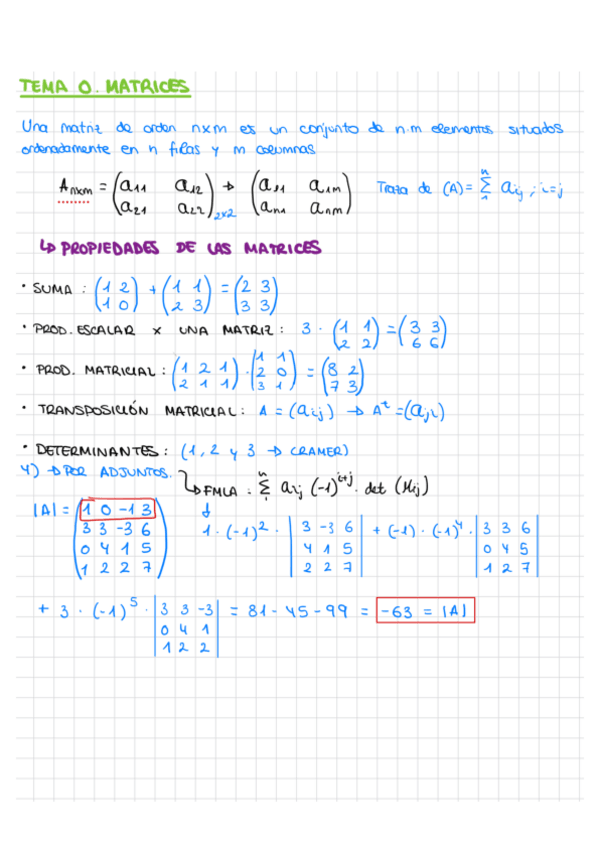 TEMA 0. MATRICES
Una matriz de orden nxm es un conjunto de n·m elementos situados
ordenadamente en n filas y m columnas
A_nxm = (a_11 a_12 / a_21 a_22)_2x2 → (a_11 a_1m / a_n1 a_nm) Traza de (A) = Σ_1^n a_ij ; i=j
↳ PROPIEDADES DE LAS MATRICES
· SUMA : (1 2 / 1 0) + (1 1 / 2 3) = (2 3 / 3 3)
· PROD. ESCALAR x UNA MATRIZ : 3 · (1 1 / 2 2) = (3 3 / 6 6)
· PROD. MATRICIAL : (1 2 1 / 2 1 1) · (1 1 / 2 0 / 3 1) = (8 2 / 7 3)
· TRANSPOSICIÓN MATRICIAL : A = (a_ij) → A^t = (a_ji)
· DETERMINANTES : (1, 2 y 3 → CRAMER)
4) → POR ADJUNTOS. ↳ FMLA : Σ_1^n a_ij (-1)^i+j · det (M_ij)
|A| = (1 0 -1 3 / 3 3 -3 6 / 0 4 1 5 / 1 2 2 7) ↓ 1 · (-1)^2 · |3 -3 6 / 4 1 5 / 2 2 7| + (-1) · (-1)^4 · |3 3 6 / 0 4 5 / 1 2 7|
+ 3 · (-1)^5 · |3 3 -3 / 0 4 1 / 1 2 2| = 81 - 45 - 99 = -63 = |A|